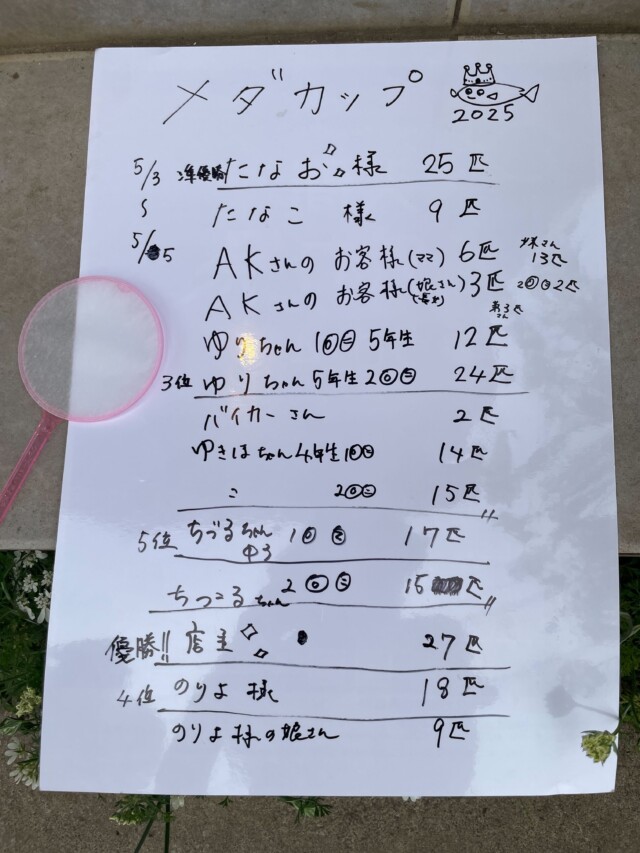 メダカップ
2025
5/3 準優勝 たなお様 25匹
〜
5/5
たなこ 様 9匹
AKさんの お客様(ママ) 6匹
妹さん
13匹
AKさんの お客様(娘さん) 3匹 2回目2匹
弟3匹
さん
ゆりちゃん 1回目 5年生 12匹
3位 ゆりちゃん5年生2回目 24匹
バイカーさん 2匹
ゆきほちゃん4年生1回目 14匹
〃 2回目 15匹
5位 ちづるちゃん 1回目 17匹
中3
ちづるちゃん 2回目 15匹
優勝!! 店主 27匹
4位 のりよ 様 18匹
のりよ様の娘さん 9匹